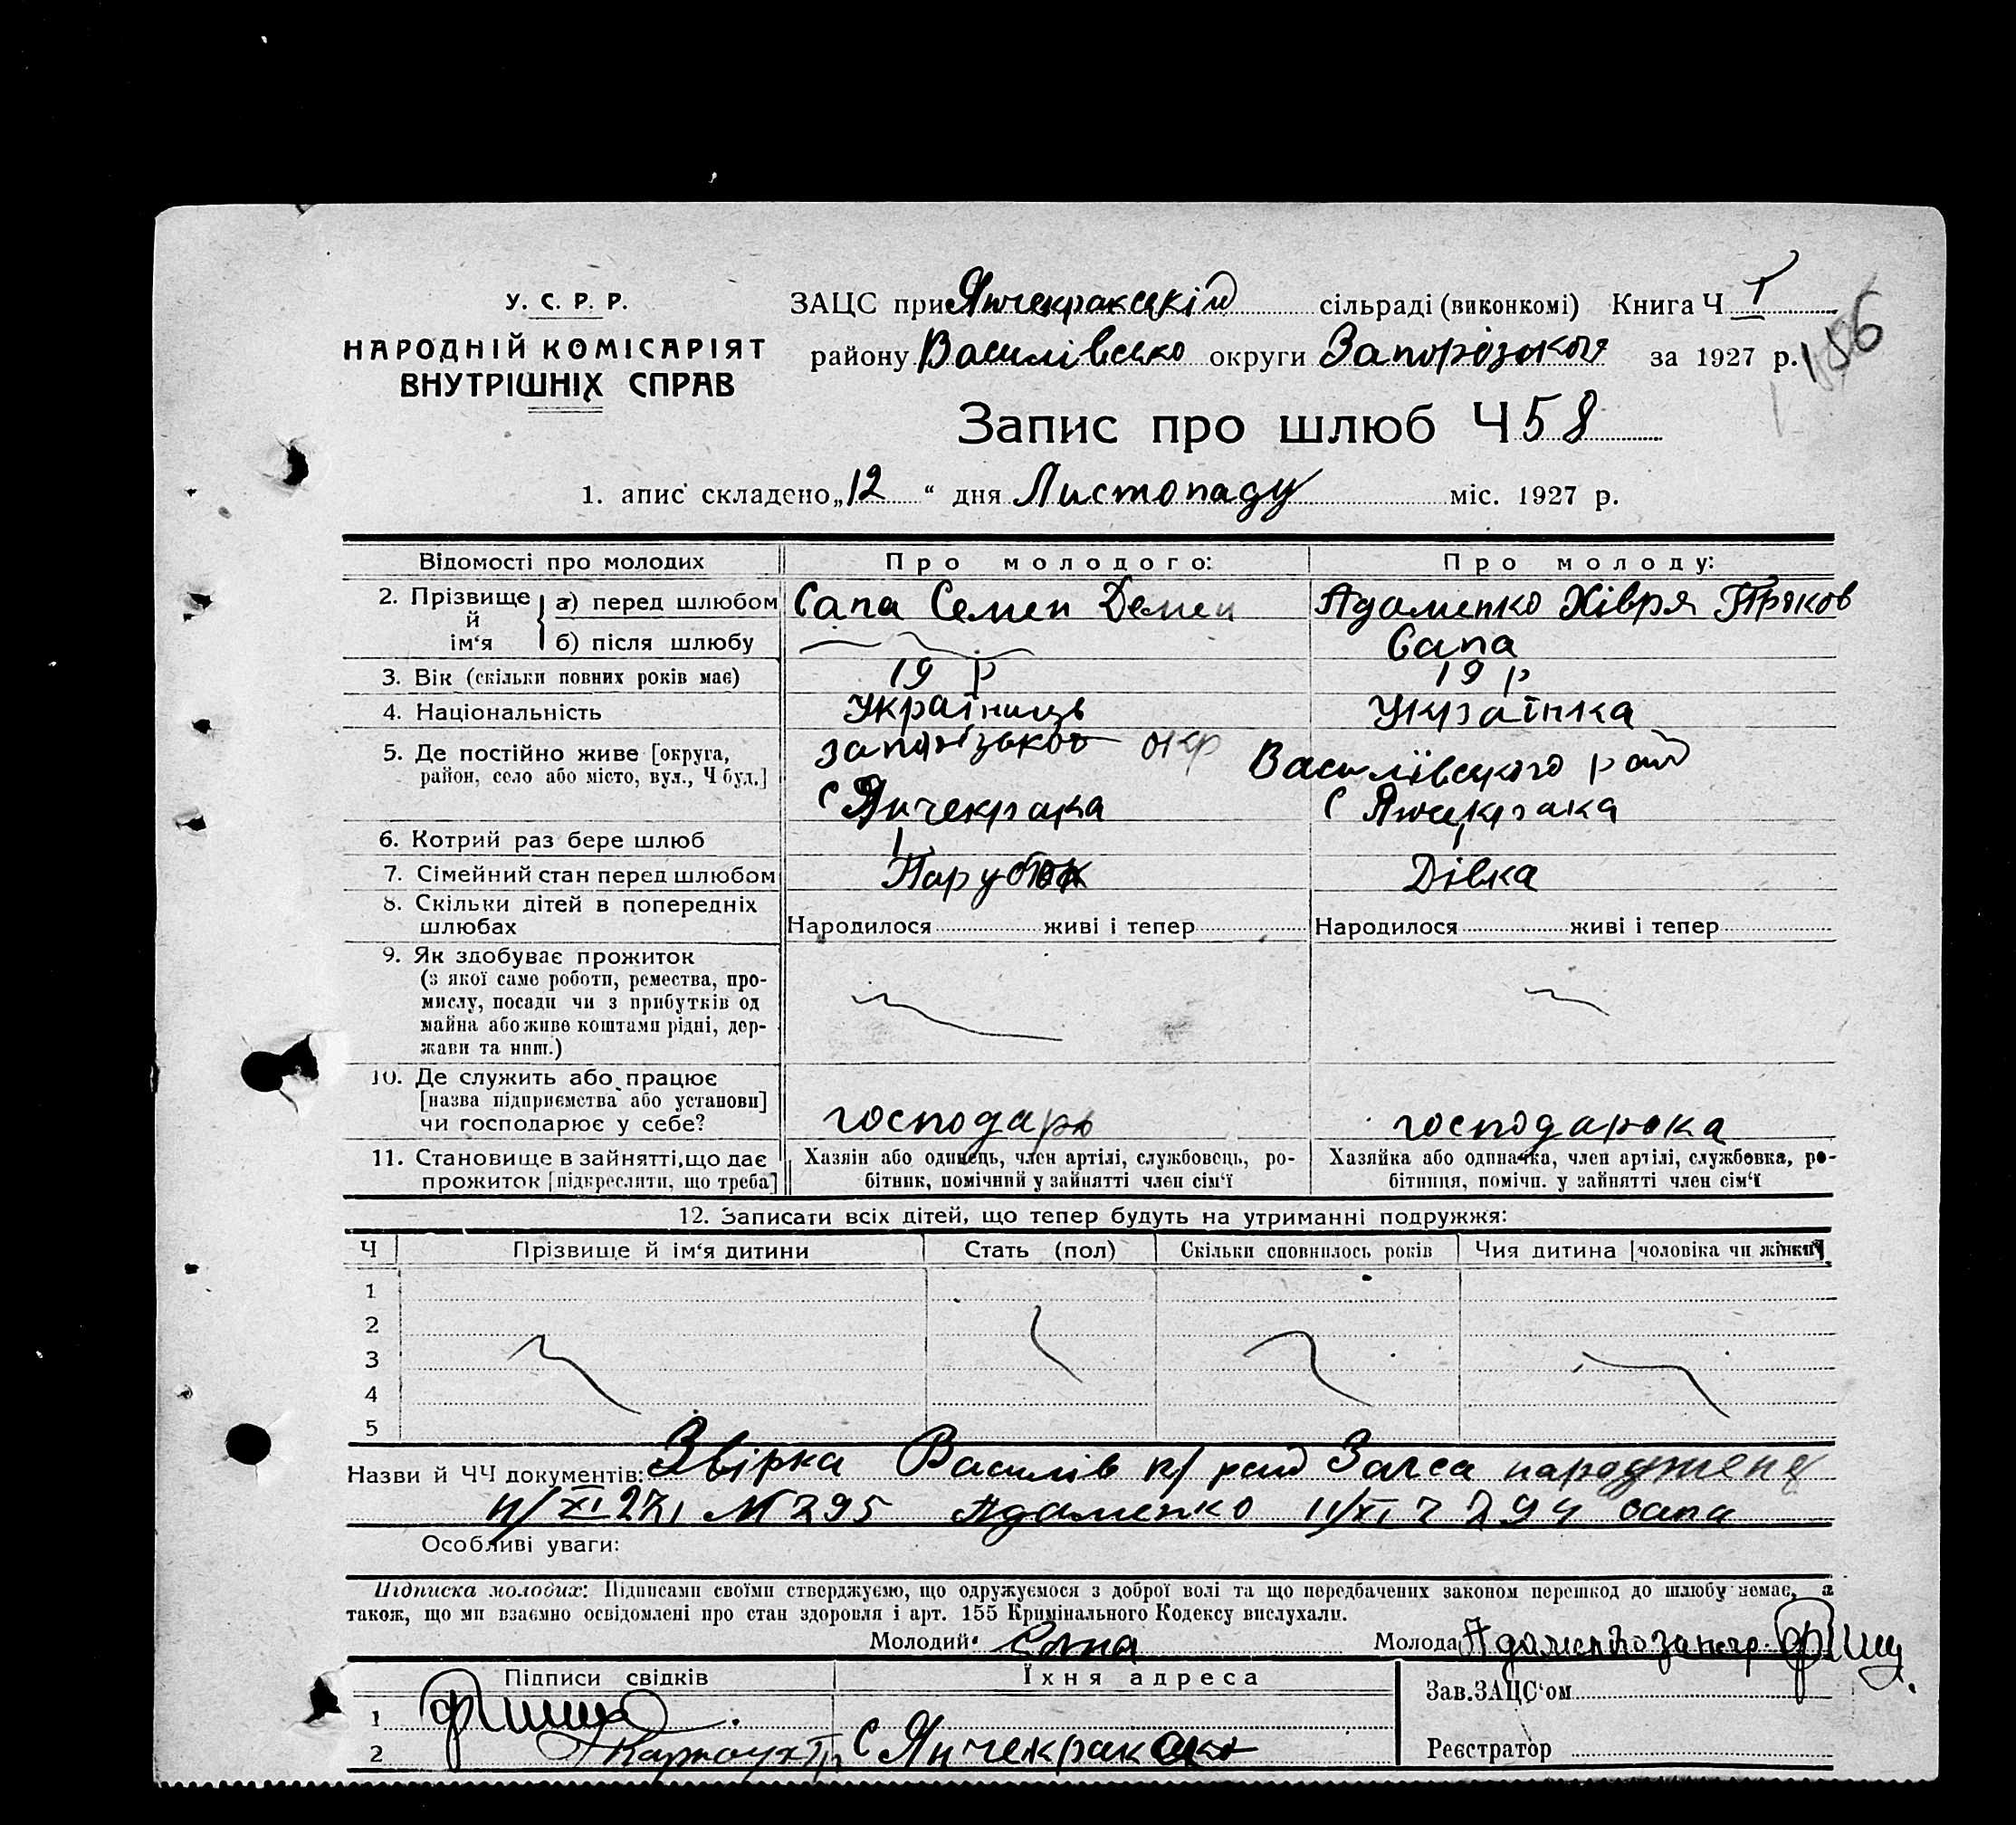 У. С. Р. Р.
НАРОДНІЙ КОМІСАРІЯТ
ВНУТРІШНІХ СПРАВ
ЗАЦС при Янчекракській сільраді (виконкомі) Книга Ч I
району Василівсько округи Запорізької за 1927 р. 156
Запис про шлюб Ч 58
1. апис складено „12“ дня Листопаду міс. 1927 р.
Відомості про молодих Про молодого: Про молоду:
2. Прізвище й ім‘я а) перед шлюбом Сапа Семен Демен Адаменко Хівря
б) після шлюбу Сапа
3. Вік (скільки повних років має) 19 р 19 р
4. Національність Українець Українка
5. Де постійно живе [округа, район, село або місто, вул., Ч буд.] запорізької окр Василівського рай
с Янчекрака с Янчекрака
6. Котрий раз бере шлюб 1 1
7. Сімейний стан перед шлюбом Парубок Дівка
8. Скільки дітей в попередніх шлюбах Народилося живі і тепер Народилося живі і тепер
9. Як здобуває прожиток
(з якої саме роботи, ремества, про-
мислу, посади чи з прибутків од
майна або живе коштами рідні, дер-
жави та инш.)
10. Де служить або працює
[назва підприємства або установи]
чи господарює у себе? господарь господарока
11. Становище в зайнятті, що дає прожиток [підкреслити, що треба] Хазяін або одинець, член артілі, службовець, ро-
бітник, помічний у зайнятті член сім‘ї
Хазяйка або одиначка, член артілі, службовка, ро-
бітниця, помічн. у зайнятті член сім‘ї
12. Записати всіх дітей, що тепер будуть на утриманні подружжя:
Ч Прізвище й ім‘я дитини Стать (пол) Скільки сповнилось років Чия дитина [чоловіка чи жінки]
1
2
3
4
5
Назви й ЧЧ документів: Звірка Василів рай Загса народжене
XI 27 № 295 Адаменко 11/XI 7 294 сапа
Особливі уваги:
Підписка молодих: Підписами своїми стверджуємо, що одружуємося з доброї волі та що передбачених законом перешкод до шлюбу немає, а
також, що ми взаємно освідомлені про стан здоровля і арт. 155 Кримінального Кодексу вислухали.
Молодий Сапа Молода Адаменко
Підписи свідків Їхня адреса
Зав. ЗАЦС‘ом
1
2 с Янчекрак
Реєстратор